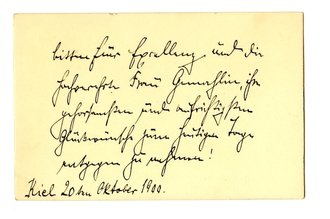 bitten Eure Excellenz und die
hochverehrte Frau Gemahlin, ihre
gehorsamsten und aufrichtigsten
Glückwünsche zum heutigen Tage
entgegen zu nehmen!
Kiel 20ten Oktober 1900.